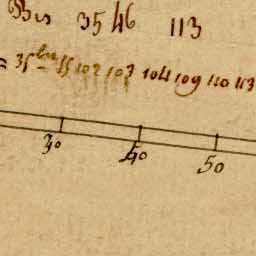 Bis 35 46 113
102 103 104 109 110 113
30 40 50